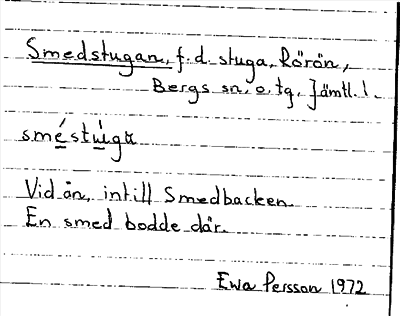 Smedstugan, f.d. stuga, Rörön,
Bergs sn. o. tg, Jämtl. l.
sméstúga
Vid ån, intill Smedbacken.
En smed bodde där.
Ewa Persson 1972